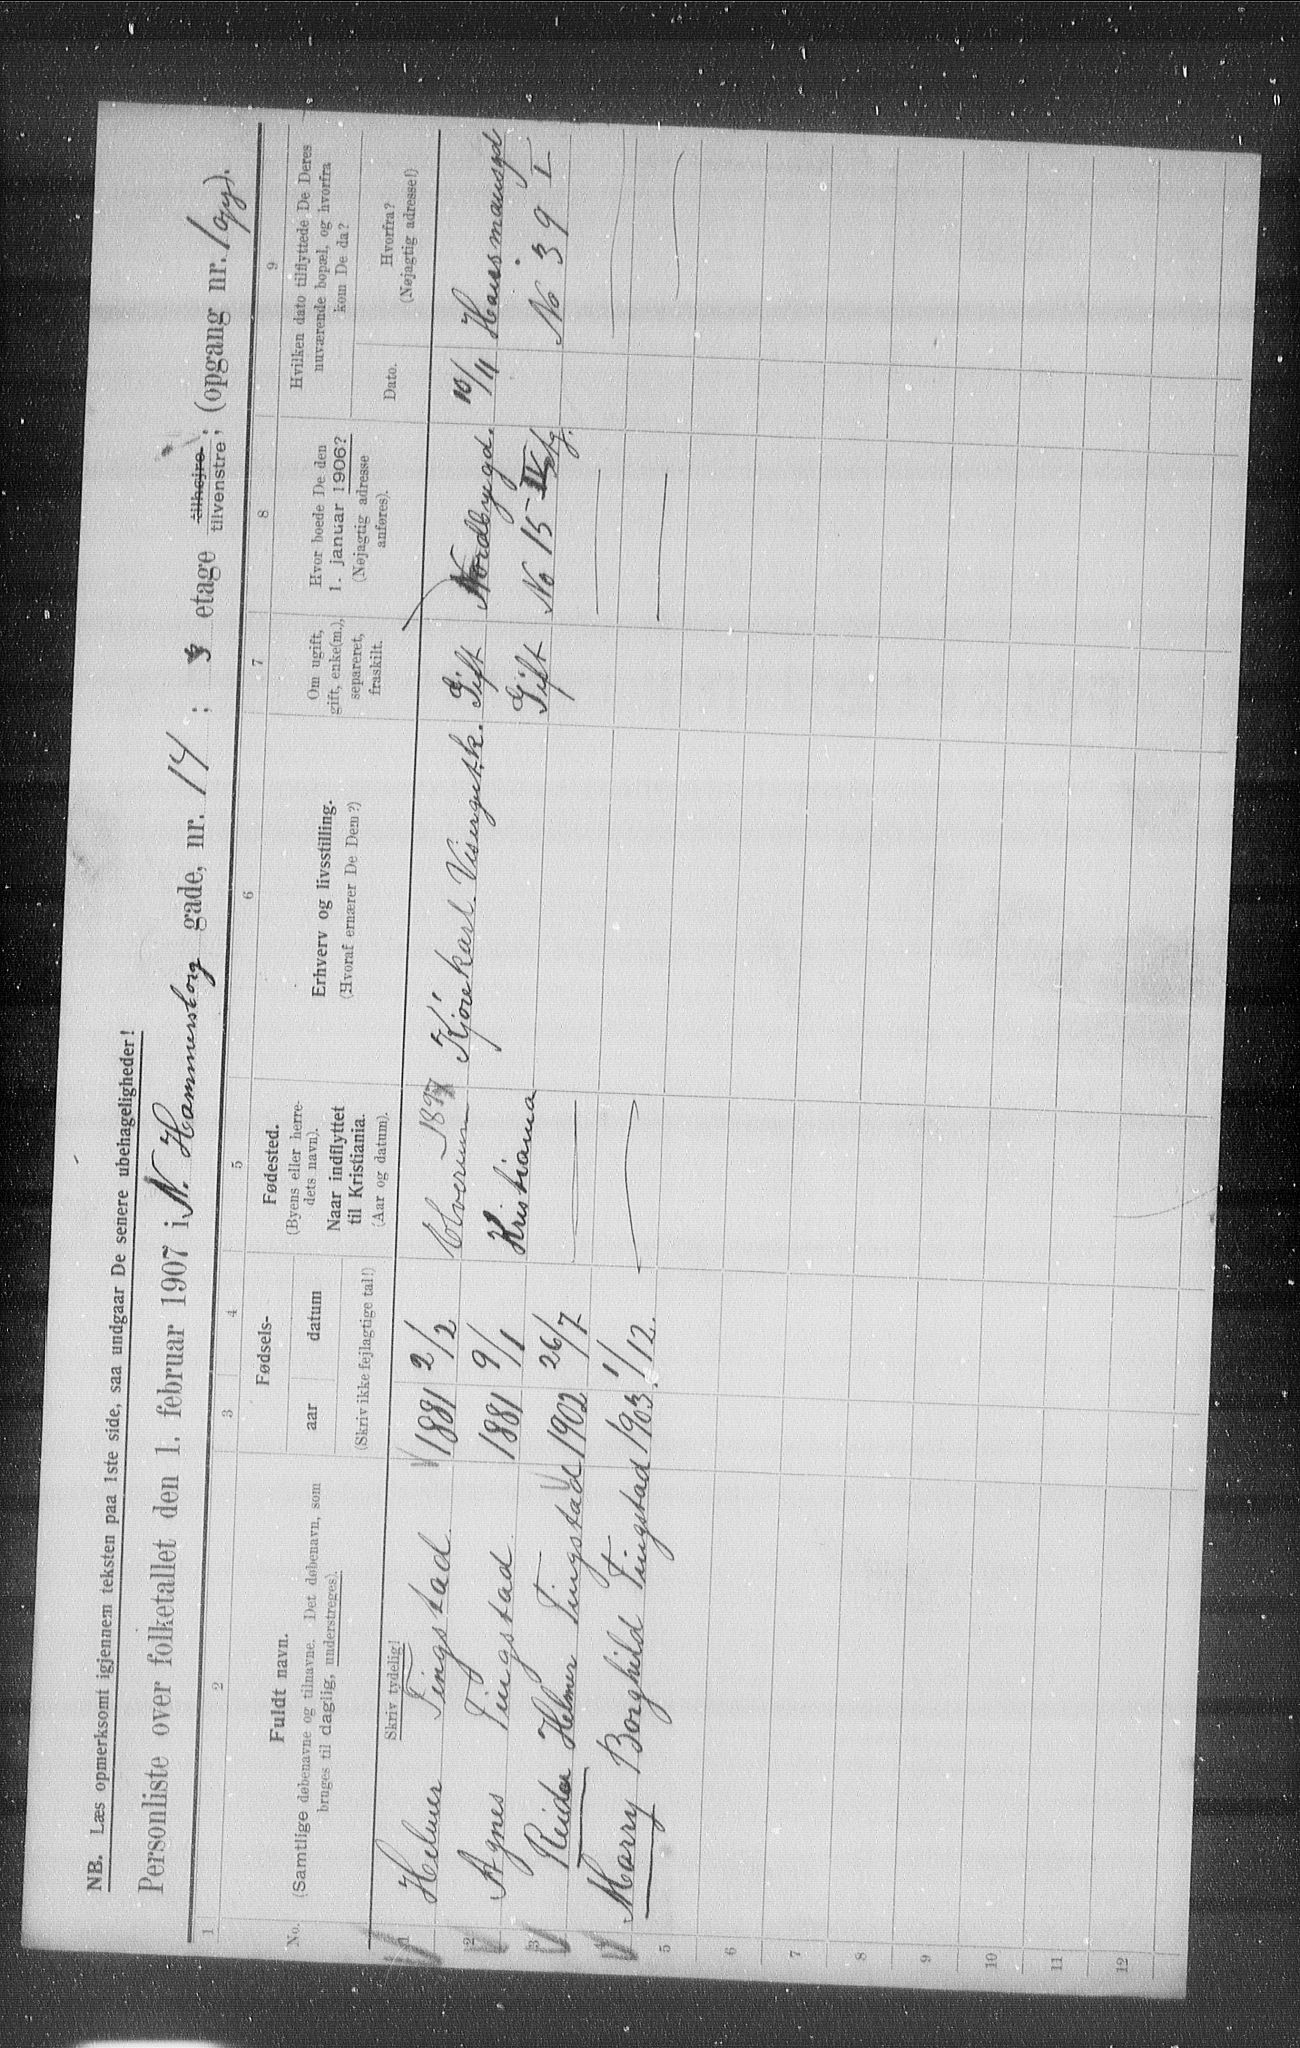 NB. Læs opmerksomt igjennem teksten paa 1ste side, saa undgaar De senere ubehageligheder!
Personliste over folketallet den 1. februar 1907 i N. Hammersborg gade, nr. 14 ; 3 etage tilhøjre, tilvenstre, (opgang nr. 1 opg).
1 2 3 4 5 6 7 8 9
No.
Fuldt navn.
(Samtlige døbenavne og tilnavne. Det døbenavn, som
bruges til daglig, understreges).
Skriv tydelig!
Fødsels-
aar datum
(Skriv ikke fejlagtige tal!)
Fødested.
(Byens eller herre-
dets navn).
Naar indflyttet
til Kristiania.
(Aar og datum).
Erhverv og livsstilling.
(Hvoraf ernærer De Dem?)
Om ugift,
gift, enke(m.),
separeret,
fraskilt.
Hvor boede De den
1. januar 1906?
(Nøjagtig adresse
anføres).
Hvilken dato tilflyttede De Deres
nuværende bopæl, og hvorfra
kom De da?
Dato.
Hvorfra?
(Nøjagtig adresse!)
1 Helmer Tingstad. 1881 2/2 Elverum Kjørekarl. Gift Nordbygd. 10/11 Hausmansgd
2 Agnes Tingstad. 1881 9/1 Kristiania Gift No 15 No 39 I
3 Reidar Helmer Tingstad 1902 26/7
4 Marry Borghild Tingstad 1903 1/12.
5
6
7
8
9
10
11
12